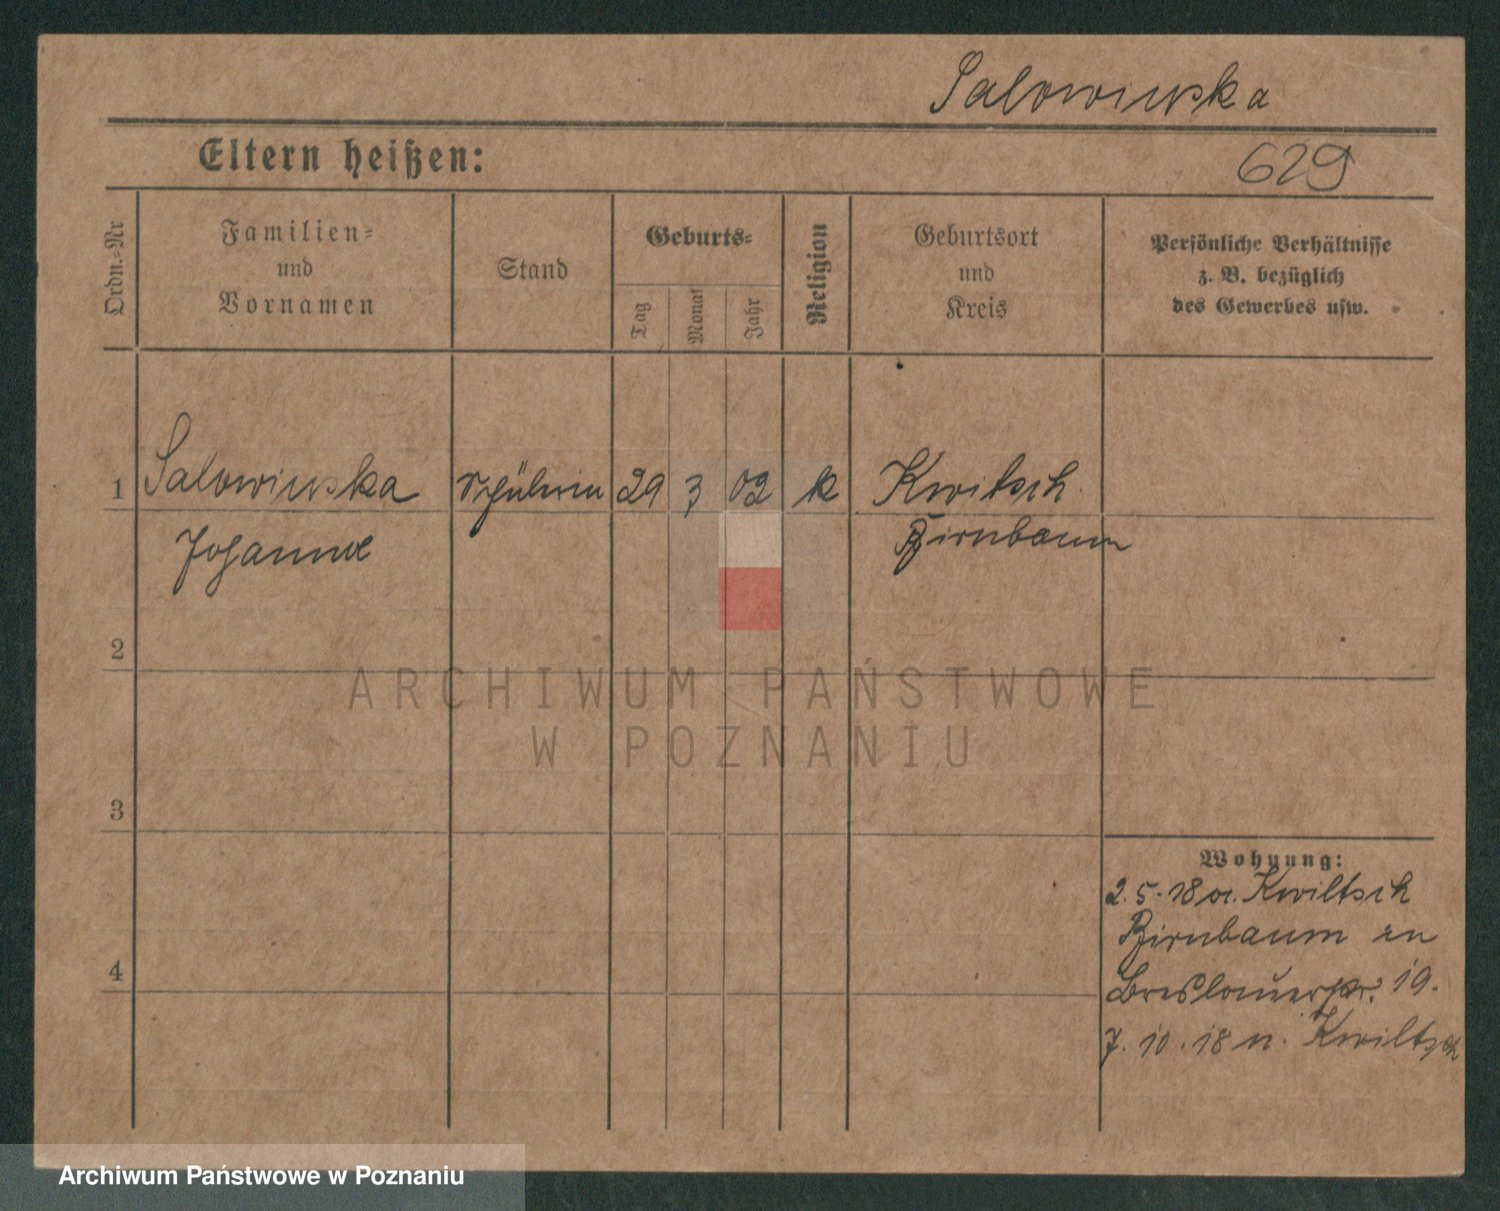 Salowinska
Eltern heißen:
629
Ordn.-Nr
Familien-
und
Vornamen
Stand
Geburts-
Tag
Monat
Jahr
Religion
Geburtsort
und
Kreis
Persönliche Verhältnisse
z. B. bezüglich
des Gewerbes usw.
1 Salowinska Schülerin 29 3 02 k Kwiltsch
Johanna Birnbaum
2
ARCHIWUM PAŃSTWOWE
W POZNANIU
3
Wohnung:
2.5.18 a. Kwiltsch
Birnbaum
Breslauerstr. 19.
4
7.10.18 n. Kwiltsch
Archiwum Państwowe w Poznaniu